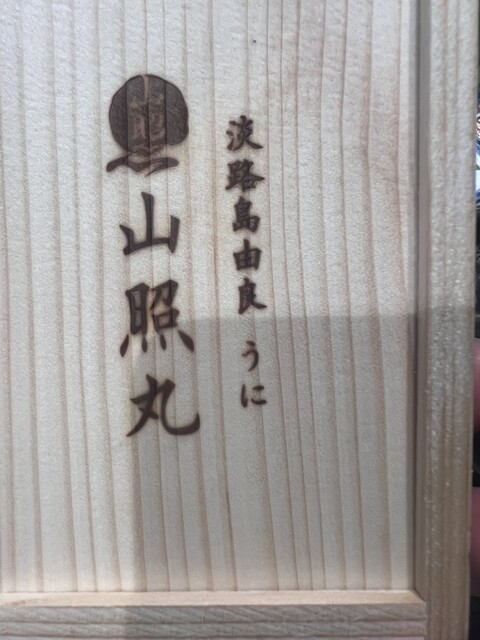 淡路島由良 うに
山照丸